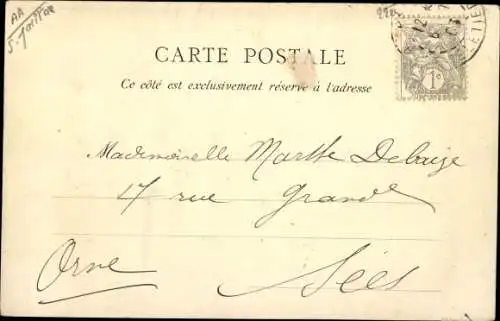 CARTE POSTALE
Ce côté est exclusivement réservé à l'adresse
1c
Mademoiselle Marthe Debaize
17 rue Grande
Sées
Orne